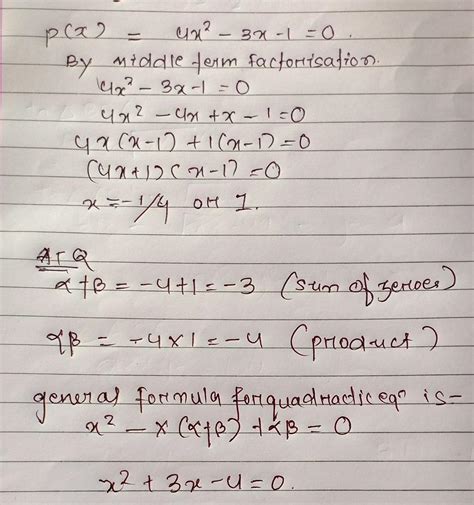 p(x) = 4x² - 3x - 1 = 0.
By middle term factorisation.
4x² - 3x - 1 = 0
4x² - 4x + x - 1 = 0
4x(x-1) + 1(x-1) = 0
(4x+1)(x-1) = 0
x = -1/4 or 1.
ATQ
α+β = -4+1 = -3 (sum of zeroes)
αβ = -4×1 = -4 (product)
general formula for quadractic eqⁿ is-
x² - x(α+β) + αβ = 0
x² + 3x - 4 = 0.